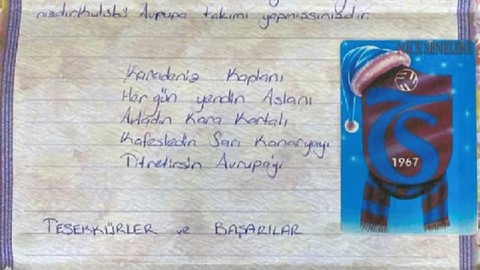 Avrupa takımı yapmışsınızdır.
Karadeniz Kaplanı
Her gün yendin Aslanı
Avladın Kara Kartalı
Kafesledin Sarı Kanaryayı
Titretirsin Avrupa'yı
TEŞEKKÜRLER ve BAŞARILAR
NİCE SENELERE
TS
1967